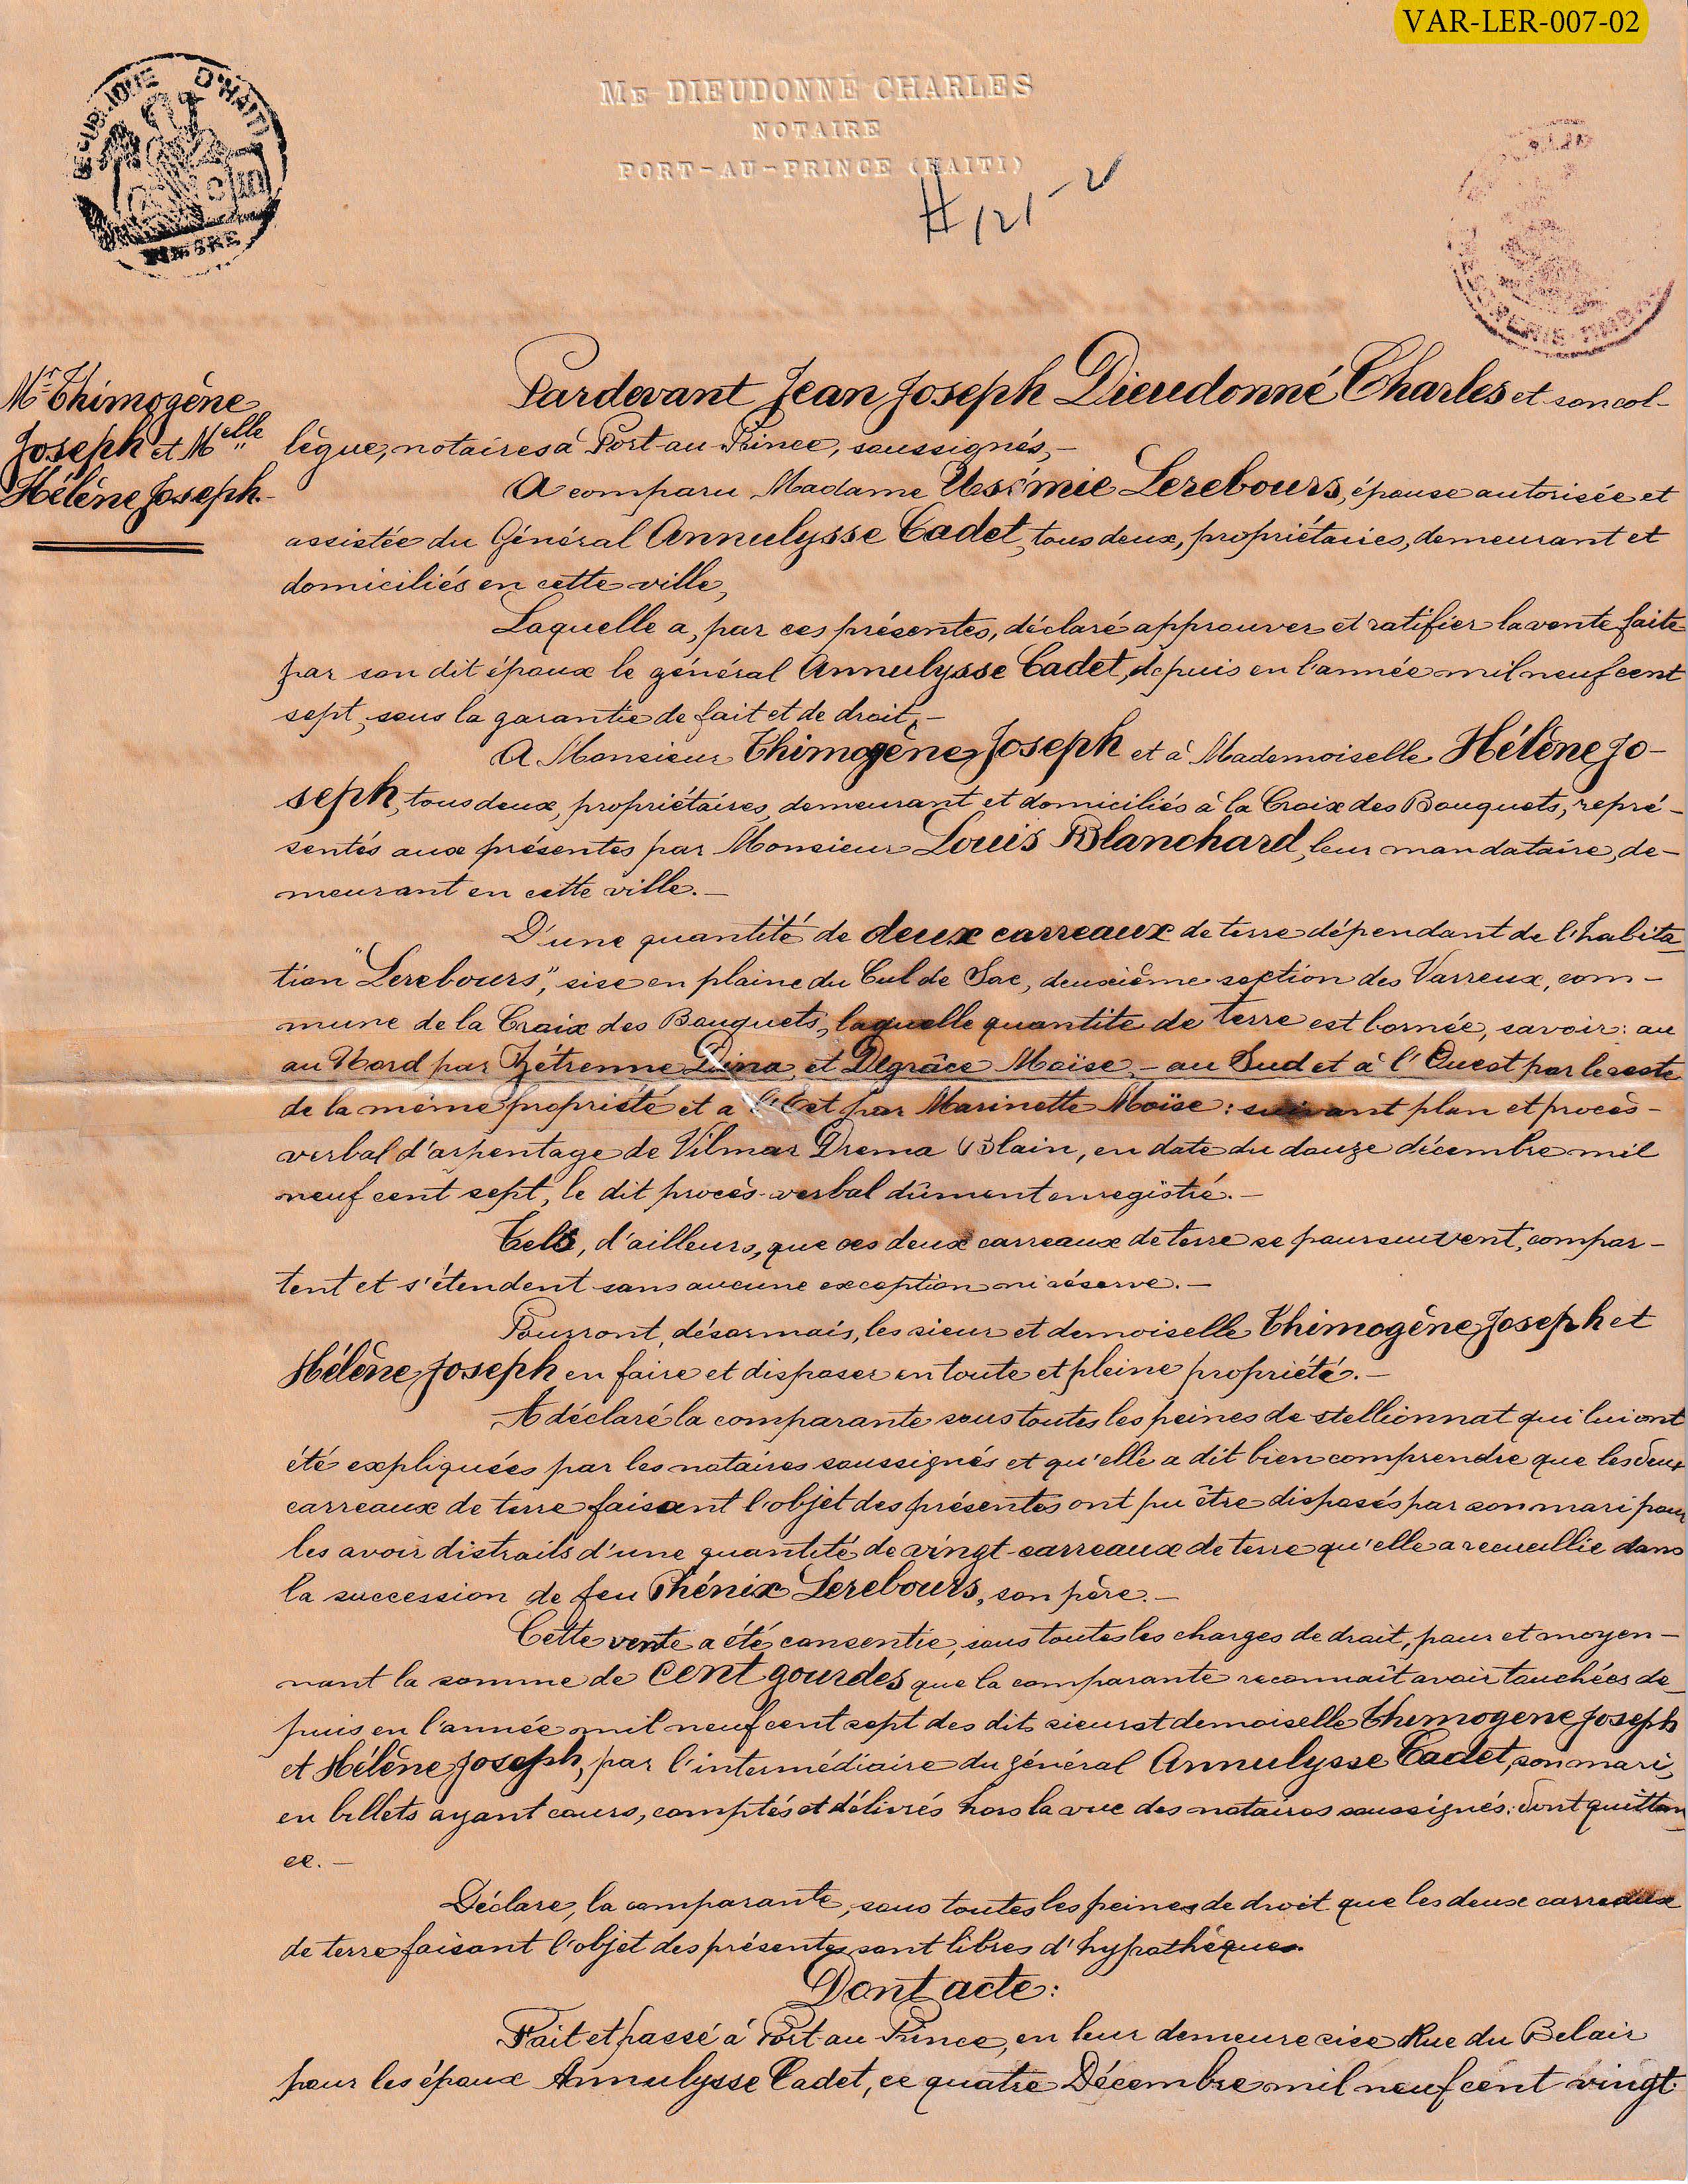 VAR-LER-007-02
REPUBLIQUE D'HAITI
TIMBRE
ME DIEUDONNÉ CHARLES
NOTAIRE
PORT-AU-PRINCE (HAITI)
# 121-
Mr Thimogène
Joseph et Melle
Hélène Joseph.-
Pardevant Jean Joseph Dieudonné Charles et son col-
lègue, notaires à Port-au-Prince, soussignés,-
A comparu Madame Usémie Lerebours, épouse autorisée et
assistée du Général Annulysse Cadet, tous deux, propriétaires, demeurant et
domiciliés en cette ville,
Laquelle a, par ces présentes, déclaré approuver et ratifier la vente faite
par son dit époux le général Annulysse Cadet, depuis en l'année mil neuf cent
sept, sous la garantie de fait et de droit,-
A Monsieur Thimogène Joseph et à Mademoiselle Hélène Jo-
seph, tous deux, propriétaires, demeurant et domiciliés à la Croix des Bouquets, repré-
sentés aux présentes par Monsieur Louis Blanchard, leur mandataire, de-
meurant en cette ville.-
D'une quantité de deux carreaux de terre dépendant de l'habita-
tion "Lerebours", sise en plaine du Cul de Sac, deuxième section des Varreux, com-
mune de la Croix des Bouquets, laquelle quantité de terre est bornée, savoir: au
au Nord par Zétrenne Dina et Dégrâce Moïse,- au Sud et à l'Ouest par le reste
de la même propriété et à l'Est par Marinette Moïse: suivant plan et procès-
verbal d'arpentage de Vilmar Drema Blain, en date du douze décembre mil
neuf cent sept, le dit procès-verbal dûment enregistré.-
Tels, d'ailleurs, que ces deux carreaux de terre se poursuivent, compor-
tent et s'étendent sans aucune exception ni réserve.-
Pourront, désormais, les sieur et demoiselle Thimogène Joseph et
Hélène Joseph en faire et disposer en toute et pleine propriété.-
A déclaré la comparante sous toutes les peines de stellionnat qui lui ont
été expliquées par les notaires soussignés et qu'elle a dit bien comprendre que les deux
carreaux de terre faisant l'objet des présentes ont pu être disposés par son mari pour
les avoir distraits d'une quantité de vingt carreaux de terre qu'elle a recueillie dans
la succession de feu Phénix Lerebours, son père.-
Cette vente a été consentie, sous toutes les charges de droit, pour et moyen-
nant la somme de cent gourdes que la comparante reconnaît avoir touchées de-
puis en l'année mil neuf cent sept des dits sieur et demoiselle Thimogene Joseph
et Hélène Joseph, par l'intermédiaire du général Annulysse Cadet, son mari,
en billets ayant cours, comptés et délivrés hors la vue des notaires soussignés: dont quittan-
ce.-
Déclare, la comparante, sous toutes les peines de droit que les deux carreaux
de terre faisant l'objet des présentes sont libres d'hypothèques.
Dont acte:
Fait et passé à Port-au-Prince, en leur demeure sise Rue du Belair
pour les époux Annulysse Cadet, ce quatre Décembre mil neuf cent vingt